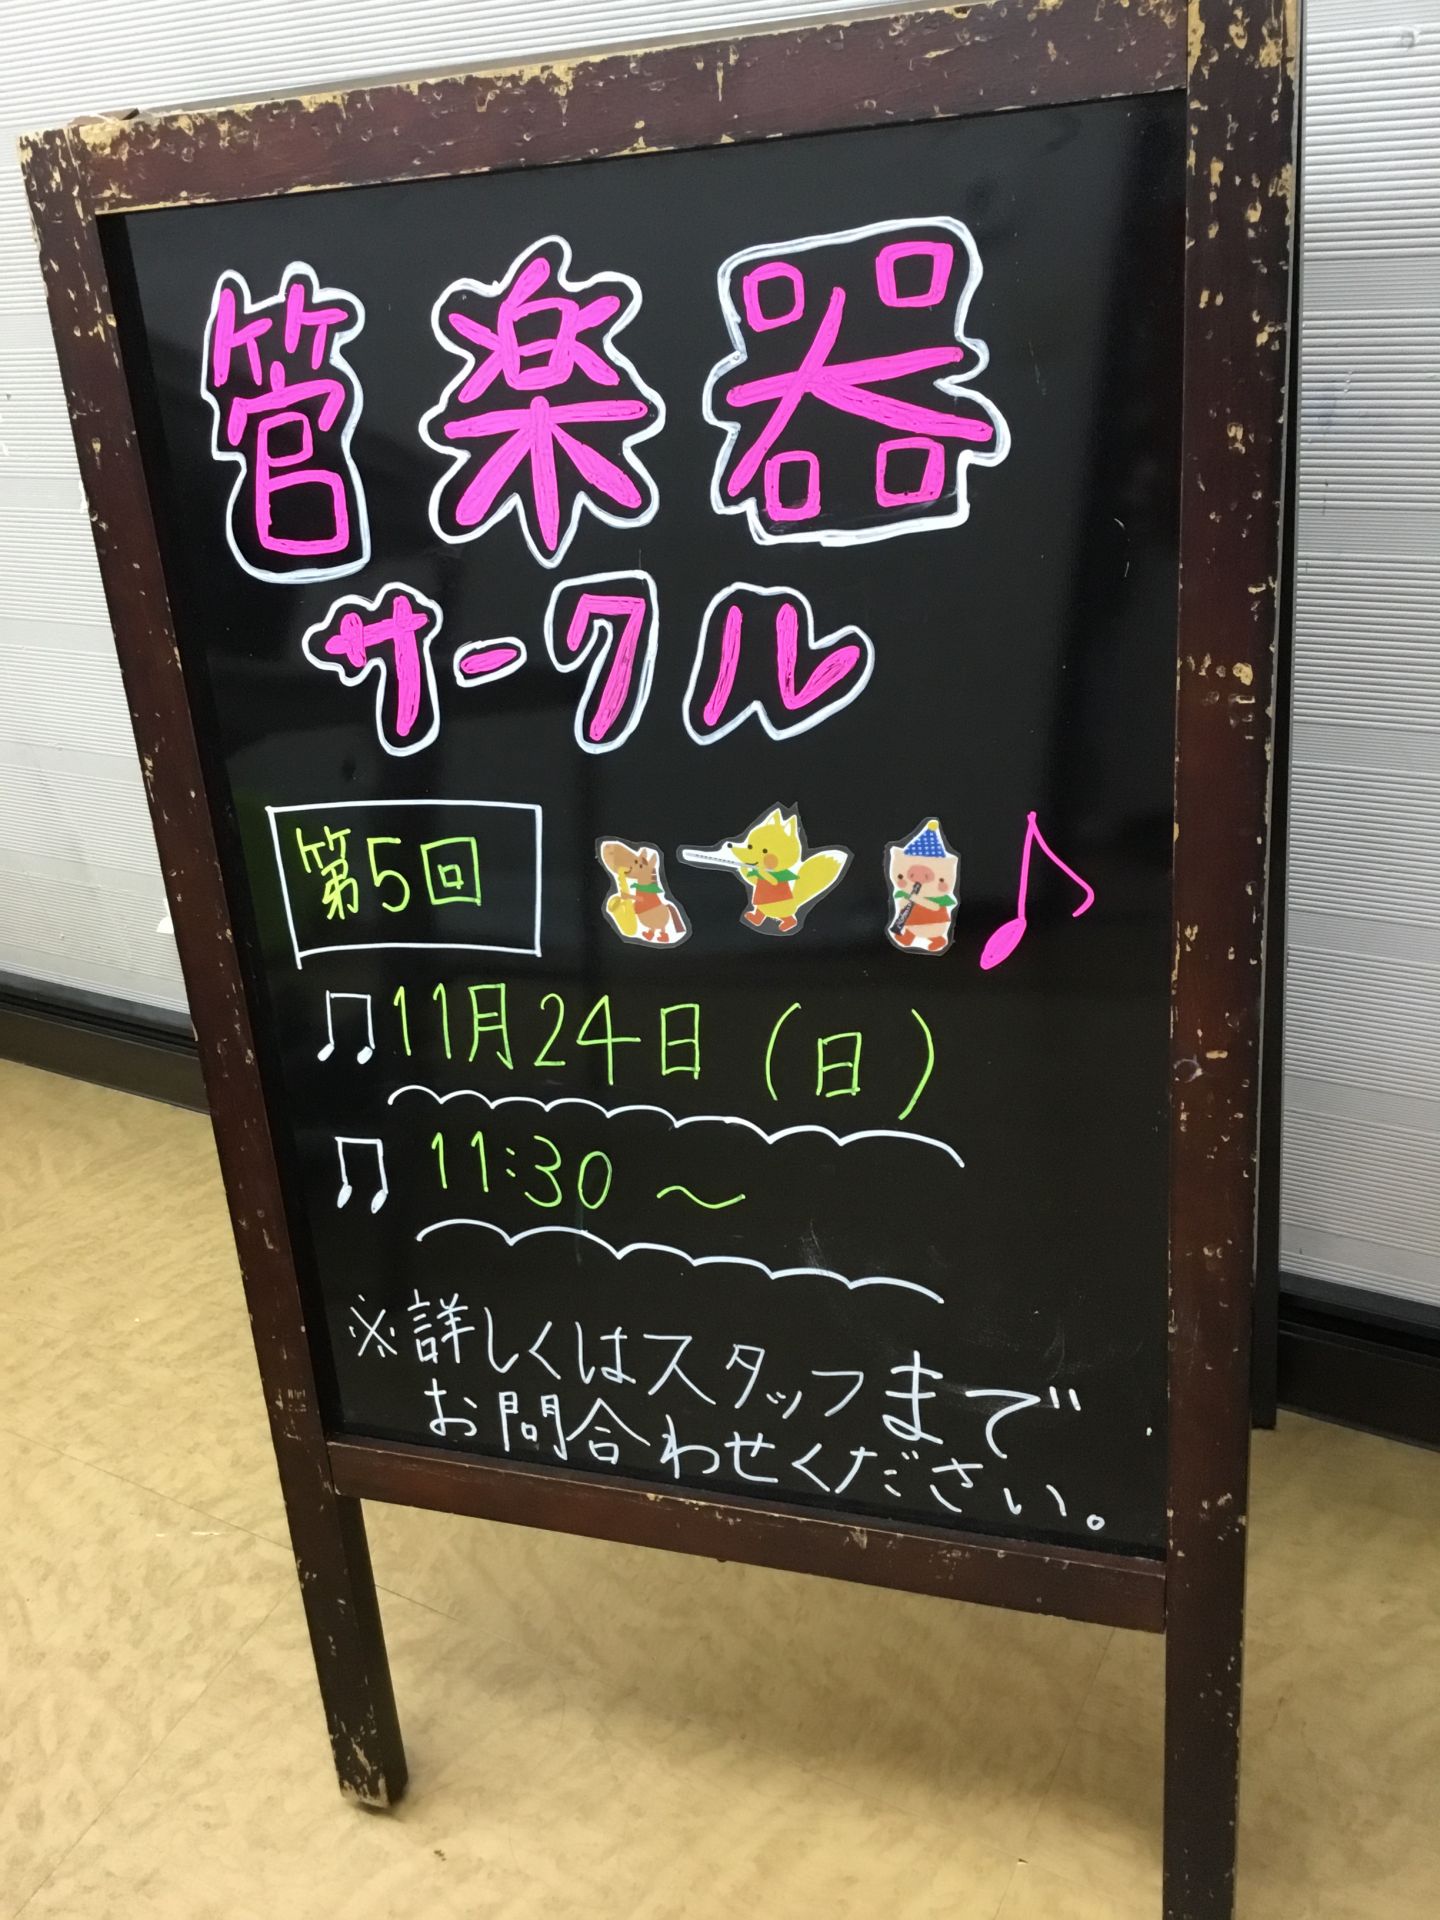 管楽器
サークル
第5回
11月24日（日）
11:30～
※詳しくはスタッフまで
お問合わせください。